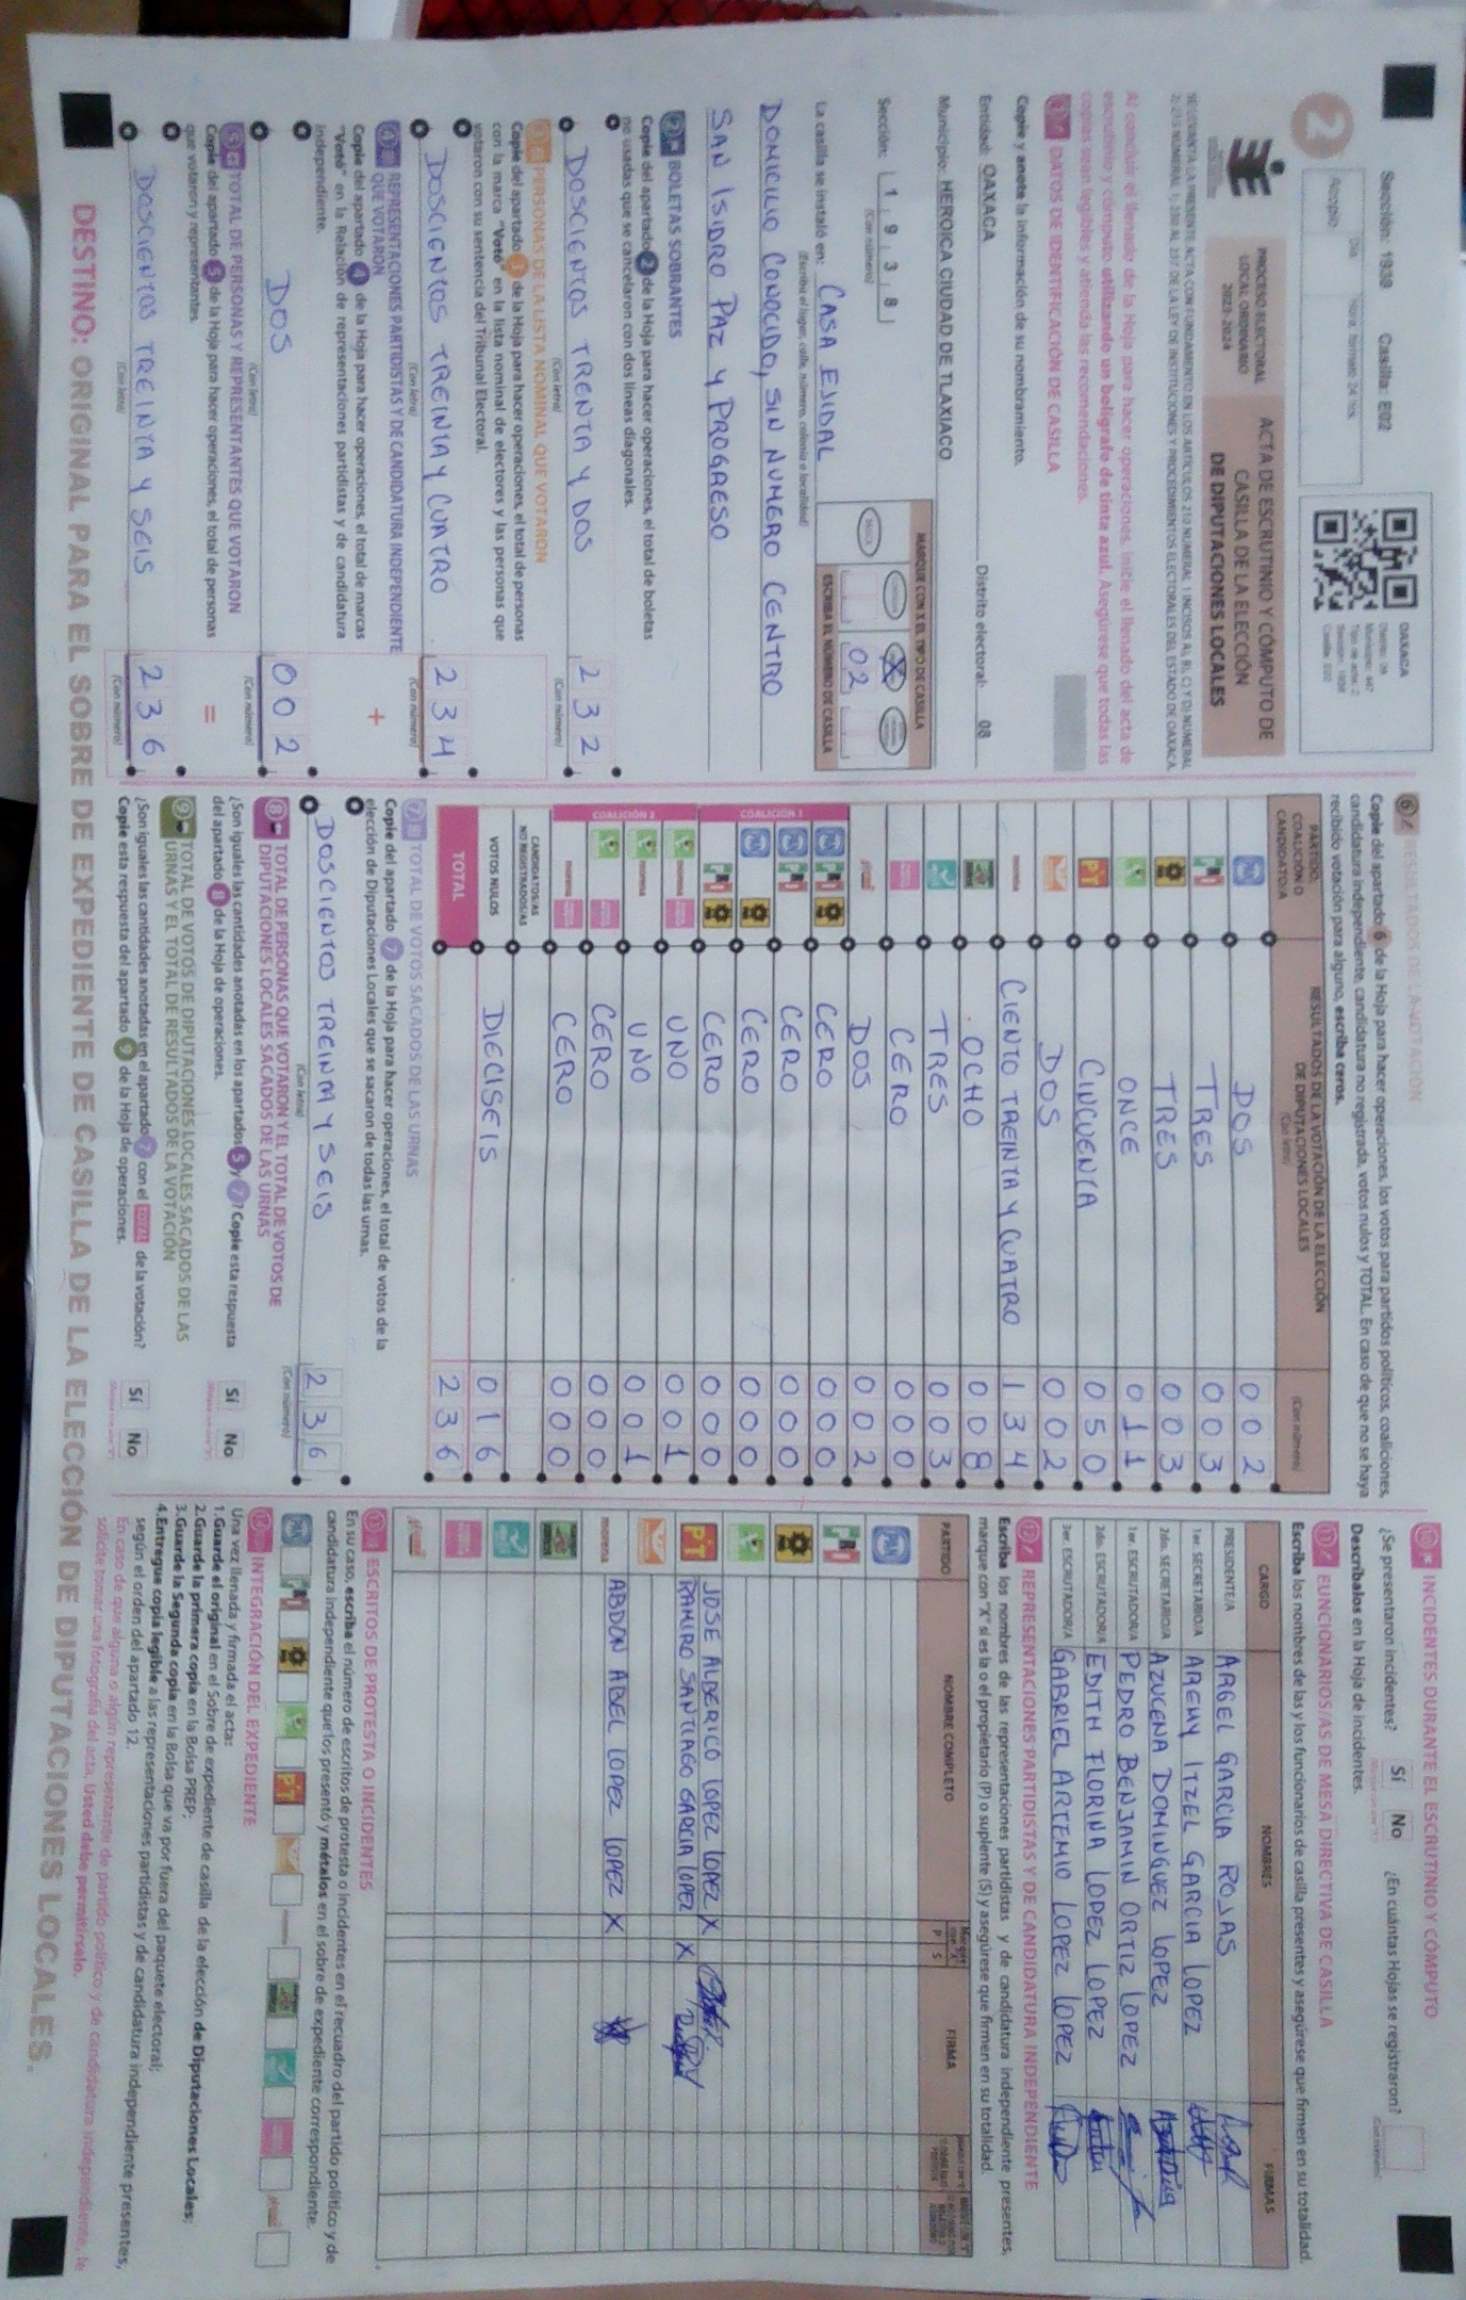 Sección: 1938 Casilla: E02
2
Acopio
Día
Hora, formato 24 hrs.
PROCESO ELECTORAL
LOCAL ORDINARIO
2023-2024
ACTA DE ESCRUTINIO Y CÓMPUTO DE
CASILLA DE LA ELECCIÓN
DE DIPUTACIONES LOCALES
OAXACA
Al concluir el llenado de la Hoja para hacer operaciones, inicie el llenado del acta de
escrutinio y cómputo utilizando un bolígrafo de tinta azul. Asegúrese que todas las
copias sean legibles y atienda las recomendaciones.
1 DATOS DE IDENTIFICACIÓN DE CASILLA
Copie y anote la información de su nombramiento.
Entidad: OAXACA Distrito electoral: 08
Municipio: HEROICA CIUDAD DE TLAXIACO
Sección: 1 9 3 8
(Con número)
MARQUE CON X EL TIPO DE CASILLA
X
02
ESCRIBA EL NÚMERO DE CASILLA
La casilla se instaló en: CASA EJIDAL
(Escriba el lugar, calle, número, colonia o localidad)
DOMICILIO CONOCIDO, SIN NUMERO CENTRO
SAN ISIDRO PAZ Y PROGRESO
2 BOLETAS SOBRANTES
Copie del apartado 2 de la Hoja para hacer operaciones, el total de boletas
no usadas que se cancelaron con dos líneas diagonales.
DOSCIENTOS TRENTA Y DOS 2 3 2
(Con letra) (Con número)
3 PERSONAS DE LA LISTA NOMINAL QUE VOTARON
Copie del apartado 3 de la Hoja para hacer operaciones, el total de personas
con la marca "Votó" en la lista nominal de electores y las personas que
votaron con su sentencia del Tribunal Electoral.
DOSCIENTOS TREINTA Y CUATRO 2 3 4
(Con letra) (Con número)
4 REPRESENTACIONES PARTIDISTAS Y DE CANDIDATURA INDEPENDIENTE
QUE VOTARON
Copie del apartado 4 de la Hoja para hacer operaciones, el total de marcas
"Votó" en la Relación de representaciones partidistas y de candidatura
independiente.
+
DOS 0 0 2
(Con letra) (Con número)
5 TOTAL DE PERSONAS Y REPRESENTANTES QUE VOTARON
Copie del apartado 5 de la Hoja para hacer operaciones, el total de personas
que votaron y representantes.
=
DOSCIENTOS TREINTA Y SEIS 2 3 6
(Con letra) (Con número)
6 RESULTADOS DE LA VOTACIÓN
Copie del apartado 6 de la Hoja para hacer operaciones, los votos para partidos políticos, coaliciones,
candidatura independiente, candidatura no registrada, votos nulos y TOTAL. En caso de que no se haya
recibido votación para alguno, escriba ceros.
PARTIDO, COALICIÓN O CANDIDATO/A
RESULTADOS DE LA VOTACIÓN DE LA ELECCIÓN DE DIPUTACIONES LOCALES
(Con letra) (Con número)
PAN DOS 0 0 2
PRI TRES 0 0 3
TRES 0 0 3
ONCE 0 1 1
PT CINCUENTA 0 5 0
DOS 0 0 2
morena CIENTO TREINTA Y CUATRO 1 3 4
OCHO 0 0 8
TRES 0 0 3
CERO 0 0 0
DOS 0 0 2
COALICIÓN 1
CERO 0 0 0
CERO 0 0 0
CERO 0 0 0
CERO 0 0 0
COALICIÓN 2
UNO 0 0 1
UNO 0 0 1
CERO 0 0 0
CERO 0 0 0
CANDIDATOS/AS
NO REGISTRADOS/AS
VOTOS NULOS DIECISEIS 0 1 6
TOTAL 2 3 6
7 TOTAL DE VOTOS SACADOS DE LAS URNAS
Copie del apartado 7 de la Hoja para hacer operaciones, el total de votos de la
elección de Diputaciones Locales que se sacaron de todas las urnas.
DOSCIENTOS TREINTA Y SEIS 2 3 6
(Con letra) (Con número)
8 TOTAL DE PERSONAS QUE VOTARON Y EL TOTAL DE VOTOS DE
DIPUTACIONES LOCALES SACADOS DE LAS URNAS
¿Son iguales las cantidades anotadas en los apartados 5 y 7? Copie esta respuesta
del apartado 8 de la Hoja de operaciones.
Sí No
9 TOTAL DE VOTOS DE DIPUTACIONES LOCALES SACADOS DE LAS
URNAS Y EL TOTAL DE RESULTADOS DE LA VOTACIÓN
¿Son iguales las cantidades anotadas en el apartado 7 con el TOTAL de la votación?
Copie esta respuesta del apartado 9 de la Hoja de operaciones.
Sí No
10 INCIDENTES DURANTE EL ESCRUTINIO Y CÓMPUTO
¿Se presentaron incidentes? Sí No ¿En cuántas Hojas se registraron?
Descríbalos en la Hoja de incidentes.
11 FUNCIONARIOS/AS DE MESA DIRECTIVA DE CASILLA
Escriba los nombres de las y los funcionarios de casilla presentes y asegúrese que firmen en su totalidad.
CARGO NOMBRES FIRMAS
PRESIDENTE/A ARGEL GARCIA ROJAS
1er. SECRETARIO/A AREMY ITZEL GARCIA LOPEZ
2do. SECRETARIO/A AZUCENA DOMINGUEZ LOPEZ
1er. ESCRUTADOR/A PEDRO BENJAMIN ORTIZ LOPEZ
2do. ESCRUTADOR/A EDITH FLORINA LOPEZ LOPEZ
3er. ESCRUTADOR/A GABRIEL ARTEMIO LOPEZ LOPEZ
12 REPRESENTACIONES PARTIDISTAS Y DE CANDIDATURA INDEPENDIENTE
Escriba los nombres de las representaciones partidistas y de candidatura independiente presentes,
marque con "X" si es la o el propietario (P) o suplente (S) y asegúrese que firmen en su totalidad.
PARTIDO NOMBRE COMPLETO P S FIRMA
PAN
PRI
PT JOSE ALBERICO LOPEZ LOPEZ X
RAMIRO SANTIAGO GARCIA LOPEZ X
morena ABDON ABEL LOPEZ LOPEZ X
13 ESCRITOS DE PROTESTA O INCIDENTES
En su caso, escriba el número de escritos de protesta o incidentes en el recuadro del partido político y de
candidatura independiente que los presentó y métalos en el sobre de expediente correspondiente.
14 INTEGRACIÓN DEL EXPEDIENTE
Una vez llenada y firmada el acta:
1. Guarde el original en el Sobre de expediente de casilla de la elección de Diputaciones Locales;
2. Guarde la primera copia en la Bolsa PREP;
3. Guarde la Segunda copia en la Bolsa que va por fuera del paquete electoral;
4. Entregue copia legible a las representaciones partidistas y de candidatura independiente presentes,
según el orden del apartado 12.
En caso de que alguna o algún representante de partido político y de candidatura independiente, le
solicite tomar una fotografía del acta, Usted debe permitírselo.
DESTINO: ORIGINAL PARA EL SOBRE DE EXPEDIENTE DE CASILLA DE LA ELECCIÓN DE DIPUTACIONES LOCALES.